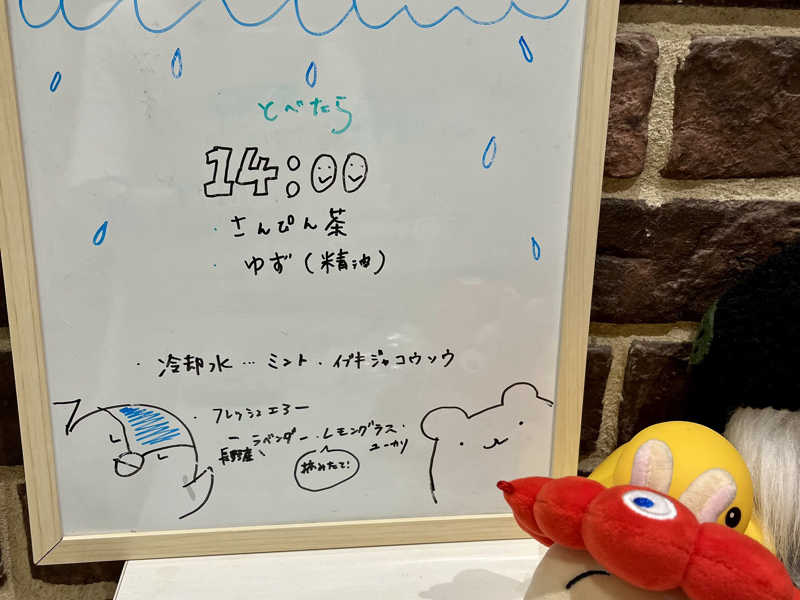 とべたら
14:00
・さんぴん茶
・ゆず(精油)
・冷却水…ミント・イブキジャコウソウ
・フレッシュエアー
ー ラベンダー・レモングラス・
長野産 ユーカリ
摘みたて!